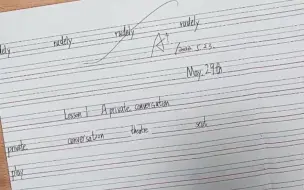 rudely rudely rudely rudely
A+
5.23.
May 29th
Lesson 1 A private conversation
private conversation theatre seat
play